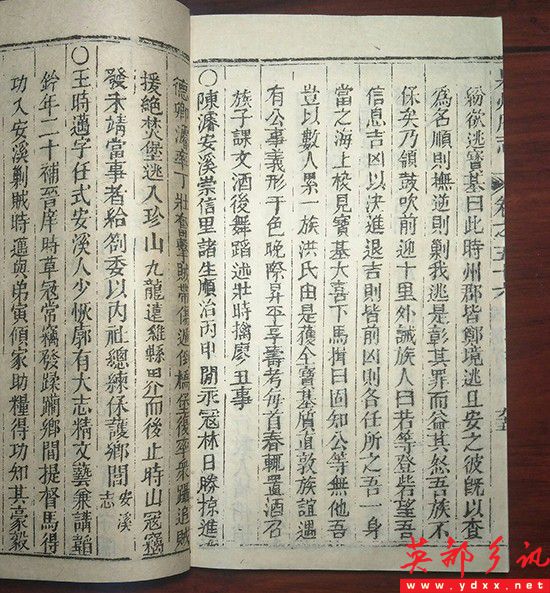 紛欲逃寶基曰此時州郡皆鄭境逃且安之彼旣以查
為名順則撫逆則剿我逃是彰其罪而益其怒吾族不
保矣乃領鼓吹前迎十里外誡族人曰若等登砦望吾
信息吉凶以決進退吉則皆前凶則各任所之吾一身
當之海上校見寶基大喜下馬揖曰固知公等無他吾
豈以數人累一族洪氏由是獲全寶基質直敦族誼遇
有公事義形于色晚際昇平享壽考每首春輒置酒召
族子課文酒後舞蹈述壯時擒廖丑事
○陳濬安溪崇信里諸生順治丙甲間永寇林日勝掠進
德卿濬率丁壯奮擊賊帶傷過俊橋堡復率衆躡追賊
援絕焚堡逃入珍山九龍遠維縣界而後止時山寇竊
發未靖當事者給劄委以內社總練保護鄉閭 安溪志
○王時邁字任式安溪人少恢廓有大志精文藝兼講韜
鈐年二十補晉庠時草寇常竊發蹂躪鄉間提督馬得
功入安溪剿賊時邁與弟寅傾家助糧得功知其豪毅
英都乡讯
www.ydxx.net